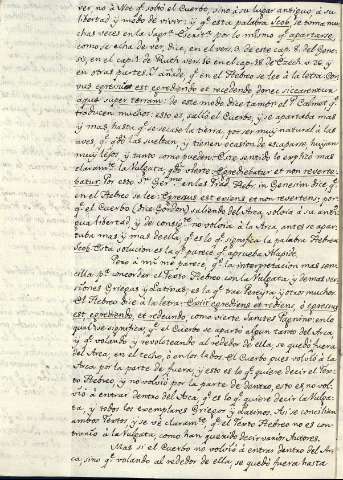 ver, no à Noe qᵉ soltó el Cuerbo, sino à su lugar antiguo, à su
libertad y modo de vivir; y qᵉ esta palabra Scob, se toma mu-
chas veces en la Sagᵈᵃ Escritᵃ por lo mismo qᵉ apartarse,
como se echa de ver, dice, en el ver. 3. de este cap. 8. del Gene-
sis, en el cap. 1. de Ruth ver. 16 en el cap. 18 de Ezech. v. 26, y
en otras partes. Y añade, qᵉ en el Hebreo se lee à la letra: Cor-
vus egressus est egrediendo et redeundo donec siccarentur
aquæ super terram: de este modo dice tambⁿ el P. Calmet qᵉ
traducen muchos: esto es, salió el Cuerbo, y se apartaba mas
y mas, hasta qᵉ se secase la tierra, por ser muy natural à las
aves, qᵉ qᵈᵒ las sueltan, y tienen ocasion de escaparse, huyan
muy lejos, y tanto como pueden. Este sentido lo explicó mas
claramᵗᵉ la Vulgata qᵈᵒ vierte Egrediebatur et non reverte-
batur. Por esto Sⁿ Germᵒ en las Trad. Hebr. in Genesim dice qᵉ
en el Hebreo se lee: Egressus est exiens et non revertens; por-
qᵉ el Cuerbo (dice Gordon) saliendo del Arca, volvía à su anti-
gua libertad, y de consigᵗᵉ no volvia à la Arca, antes se apar-
taba mas y mas de ella: qᵉ es lo qᵉ significa la palabra Hebrea
Scob. Esta solucion es la qᵉ parece qᵉ aprueba Alapide.
Pero à mi me parece qᵉ la interpretacion mas sen-
cilla pᵃ concordar el Texto Hebreo con la Vulgata, y demas ver-
siones Griegas y Latinas es la qᵉ trae Pereyra y otros muchos.
El Hebreo dice à la letra: Exiit egrediens et rediens, ò egressus
est egrediendo, et redeundo, como vierte Santes Pagnino: en lo
qual se significa, qᵉ el Cuerbo se apartó algun tanto del Arca
y qᵉ volando y revoloteando al rededor de ella, se quedó fuera
del Arca, en el techo, ò en los lados. El Cuerbo pues volvió à la
Arca por la parte de fuera, y esto es lo qᵉ quiere decir el Tex-
to Hebreo, y no volvió por la parte de dentro, esto es, no vol-
vió à entrar dentro del Arca, qᵉ es lo qᵉ quiere decir la Vulga-
ta, y todos los exemplares Griegos y Latinos. Asi se concilian
ambos Textos, y se ve claramᵗᵉ, qᵉ el Texto Hebreo no es con-
trario à la Vulgata, como han querido decir varios Autores.
Mas si el Cuerbo no volvió à entrar dentro del Ar-
ca, sino qᵉ volando al rededor de ella, se quedó fuera hasta